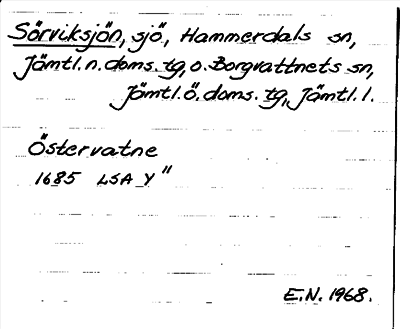 Sörviksjön, sjö, Hammerdals sn,
Jämtl.n.doms.tg, o. Borgvattnets sn,
Jämtl.ö.doms.tg, Jämtl.l.
Östervatne
1685 LSA Y"
E.N. 1968.